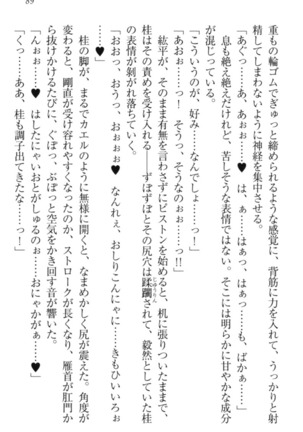 89
重もの輪ゴムでぎゅっと締められるような感覚に、背筋に力を入れて、うっかりと射
精してしまわないように神経を集中させる。
「あぐっ……あ、あぉぉ……♥　は、ぁ……はぁっ、はぁっ……も、ばかぁ……」
息も絶え絶えだけれど、苦しそうな表情ではない。そこには明らかに甘やかな成分
が混じっている。
「こういうのが、好み……なんでしょ……っ！」
「あおぉ……っ！　そうっ、これぇ……っ！」
紘平が、そのまま有無を言わさずにピストンを始めると、机に張りついたまま、
桂はその責めを受け入れる――ずぼずぼとその尻穴は蹂躙されて、毅然としていた桂
の表情が剝がれ落ちていく。
「おおっ、おうっ、おぉぉぉ♥　なんれぇ、おしりこんなに……きもひいいろぉ
……♥」
桂の脚が、まるでカエルのように無様に開くと、なまめかしく尻が震えた。角度が
変わると、剛直が受け容れやすくなったのか、ストロークが長くなり、雁首が肛門か
ら抜けかけるたびに、ぐぽっ、ぶぽっと空気をかき回す音が響いた。
「んぉぉ……♥　はしたにゃいおとがしゅるのぉ……おにゃかがぁ……♥」
「くっ……ああ、桂も調子出てきたな……っ！」